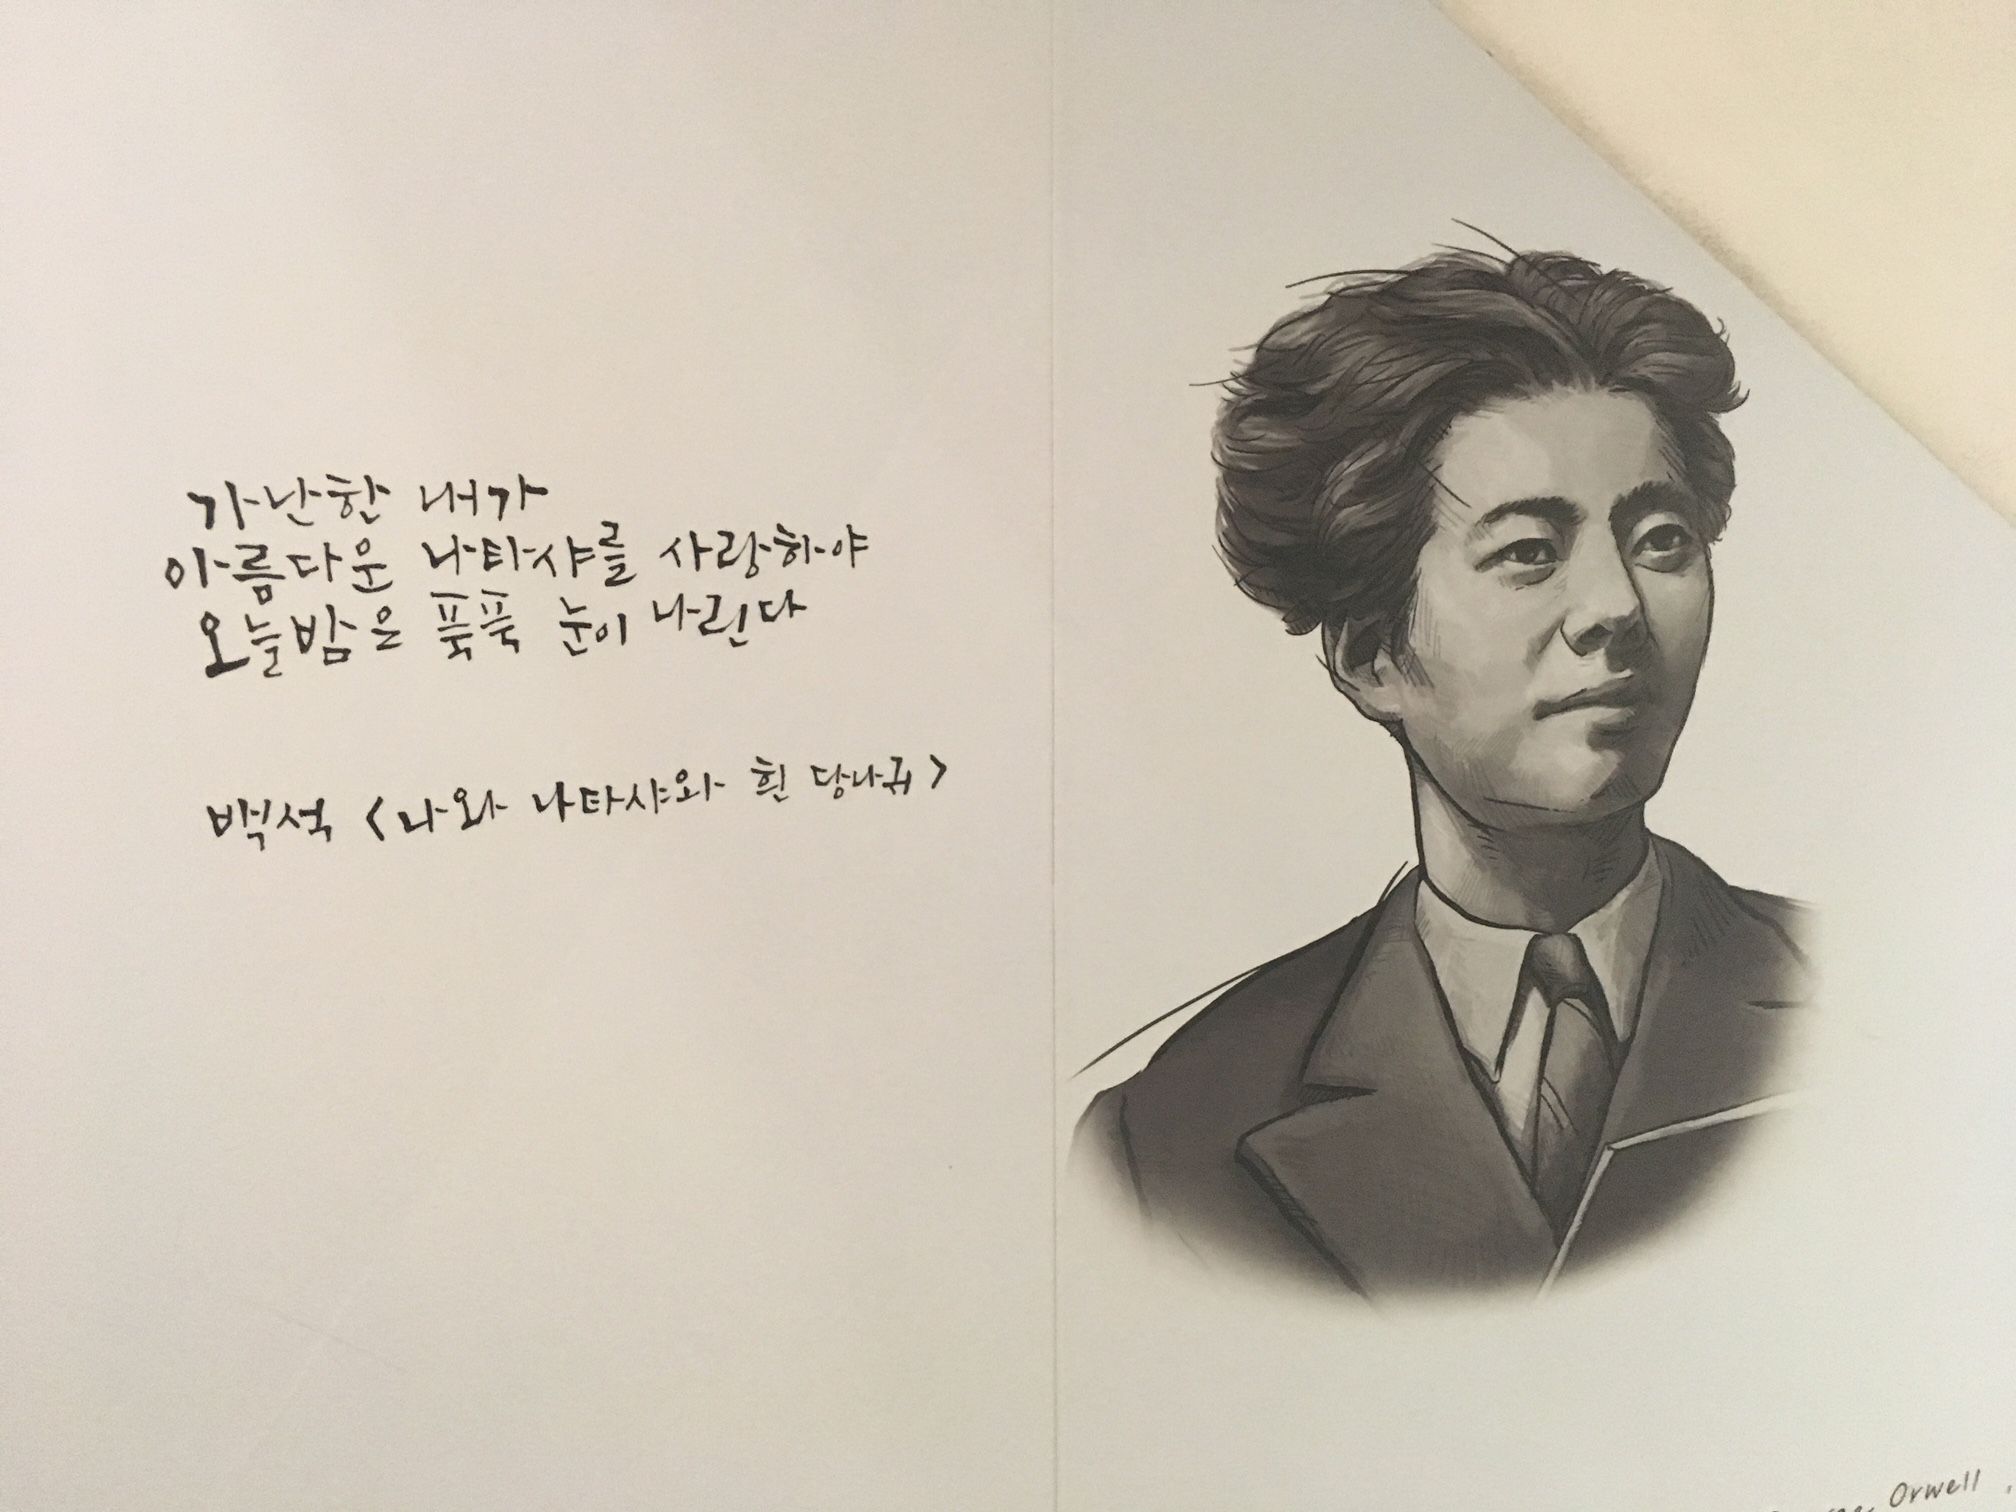 가난한 내가
아름다운 나타샤를 사랑하야
오늘밤은 푹푹 눈이 나린다
백석 <나와 나타샤와 흰 당나귀>
Orwell